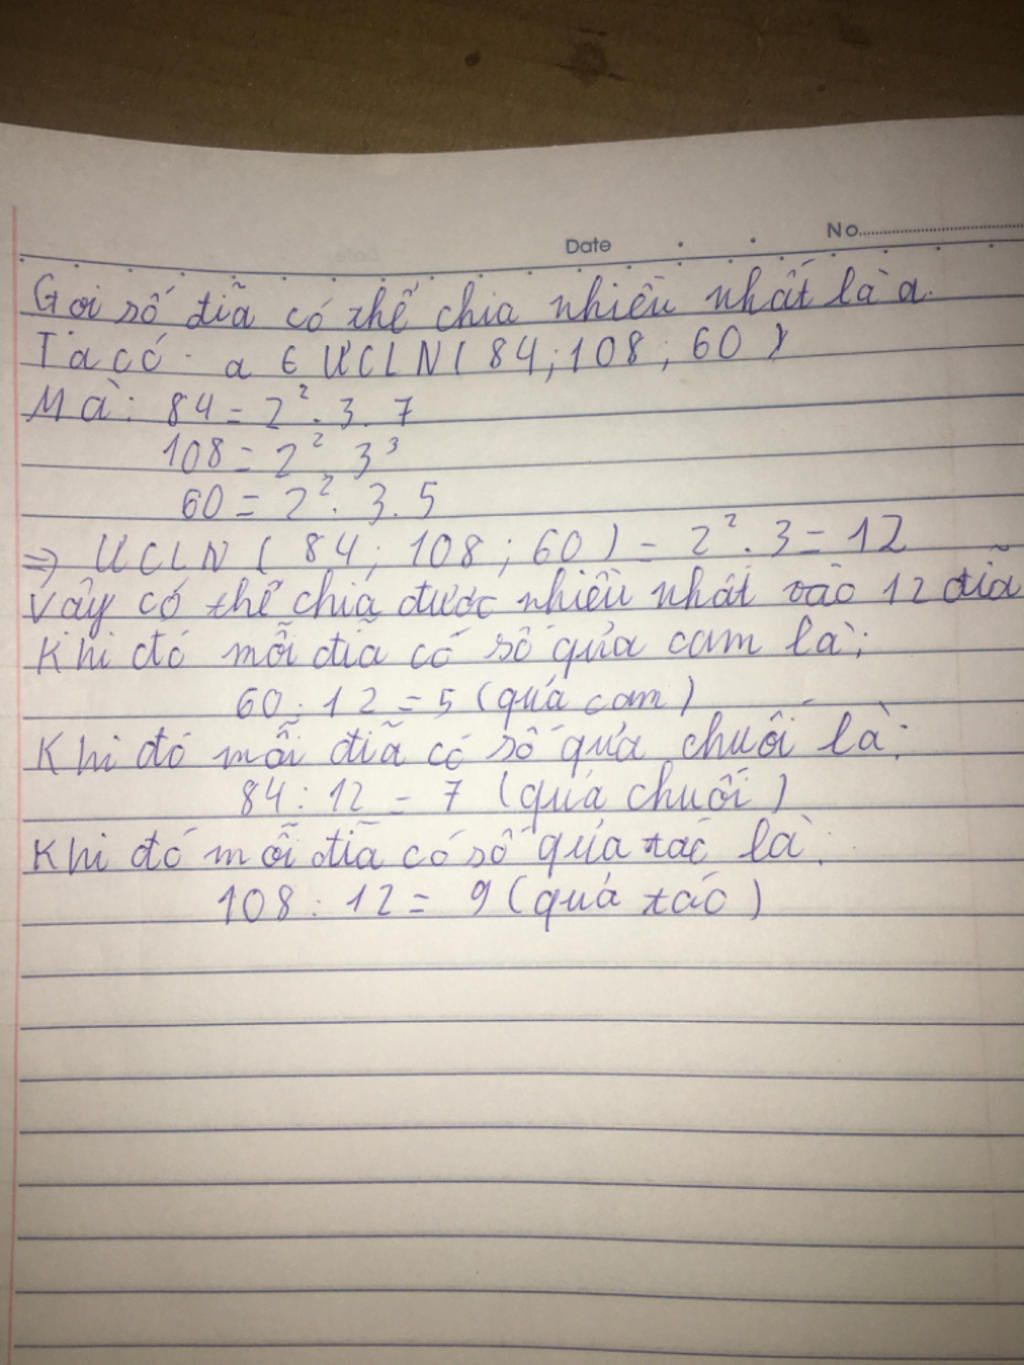 No
Date
Gọi số đĩa có thể chia nhiều nhất là a.
Ta có: a ∈ ƯCLN (84; 108; 60)
Mà: 84 = 2². 3. 7
108 = 2². 3³
60 = 2². 3. 5
=> ƯCLN (84; 108; 60) = 2². 3 = 12
Vậy có thể chia được nhiều nhất vào 12 đĩa
Khi đó mỗi đĩa có số quả cam là:
60 : 12 = 5 (quả cam)
Khi đó mỗi đĩa có số quả chuối là:
84 : 12 = 7 (quả chuối)
Khi đó mỗi đĩa có số quả táo là:
108 : 12 = 9 (quả táo)